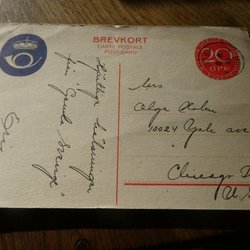 BREVKORT
CARTE POSTALE
POST-CARD
20
ÖRE
Hjärtliga hälsningar
från "Gamla Sverige"
Mrs.
Olga Holm
10024 Yale ave
Chicago
U.S.